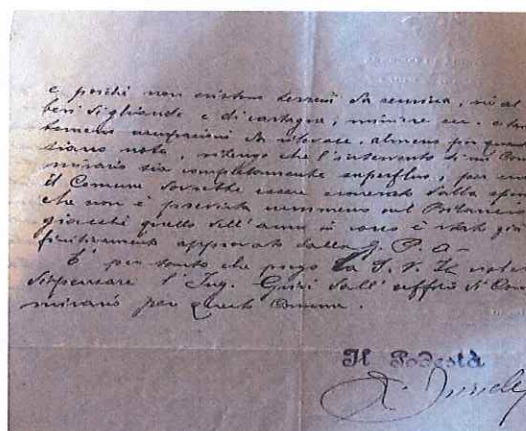 e poichè non esistono terreni da semina, nè al
beri di ghiande e di castagna, miniere ecc. e
temono usurpazioni da rilevare, almeno per quanto
siano note, ritengo che l'intervento di un Com
missario sia completamente superfluo, per cui
il Comune dovrebbe essere esonerato dalla spesa
che non è prevista nemmeno sul Bilancio
giacchè quello dell'anno in corso è stato già
finitivamente approvato dalla G. P. A.
E' per tanto che prego la S. V. Ill voler
dispensare l'Ing. dall'ufficio di Com
missario per questo Comune.
Il Podestà